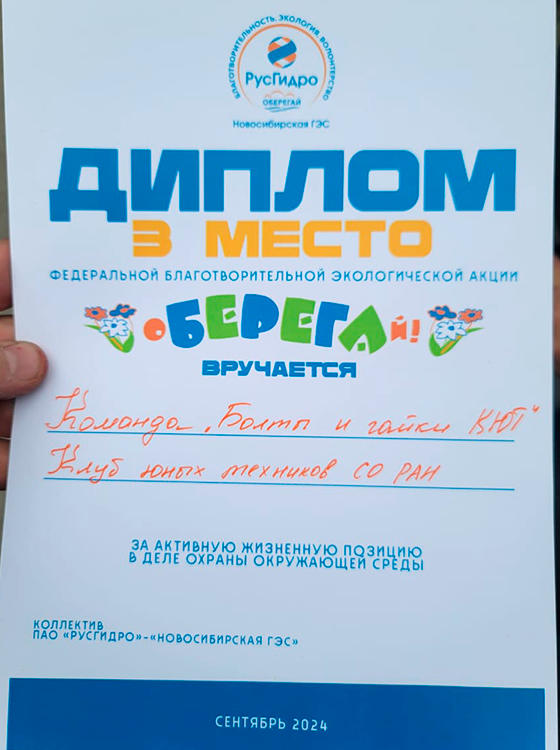 БЛАГОТВОРИТЕЛЬНОСТЬ. ЭКОЛОГИЯ. ВОЛОНТЕРСТВО
РусГидро
ОБЕРЕГАЙ
Новосибирская ГЭС
ДИПЛОМ
3 МЕСТО
ФЕДЕРАЛЬНОЙ БЛАГОТВОРИТЕЛЬНОЙ ЭКОЛОГИЧЕСКОЙ АКЦИИ
оБЕРЕГАй!
ВРУЧАЕТСЯ
Команда „Болты и гайки КЮТ"
Клуб юных техников СО РАН
ЗА АКТИВНУЮ ЖИЗНЕННУЮ ПОЗИЦИЮ
В ДЕЛЕ ОХРАНЫ ОКРУЖАЮЩЕЙ СРЕДЫ
КОЛЛЕКТИВ
ПАО «РУСГИДРО»-«НОВОСИБИРСКАЯ ГЭС»
СЕНТЯБРЬ 2024